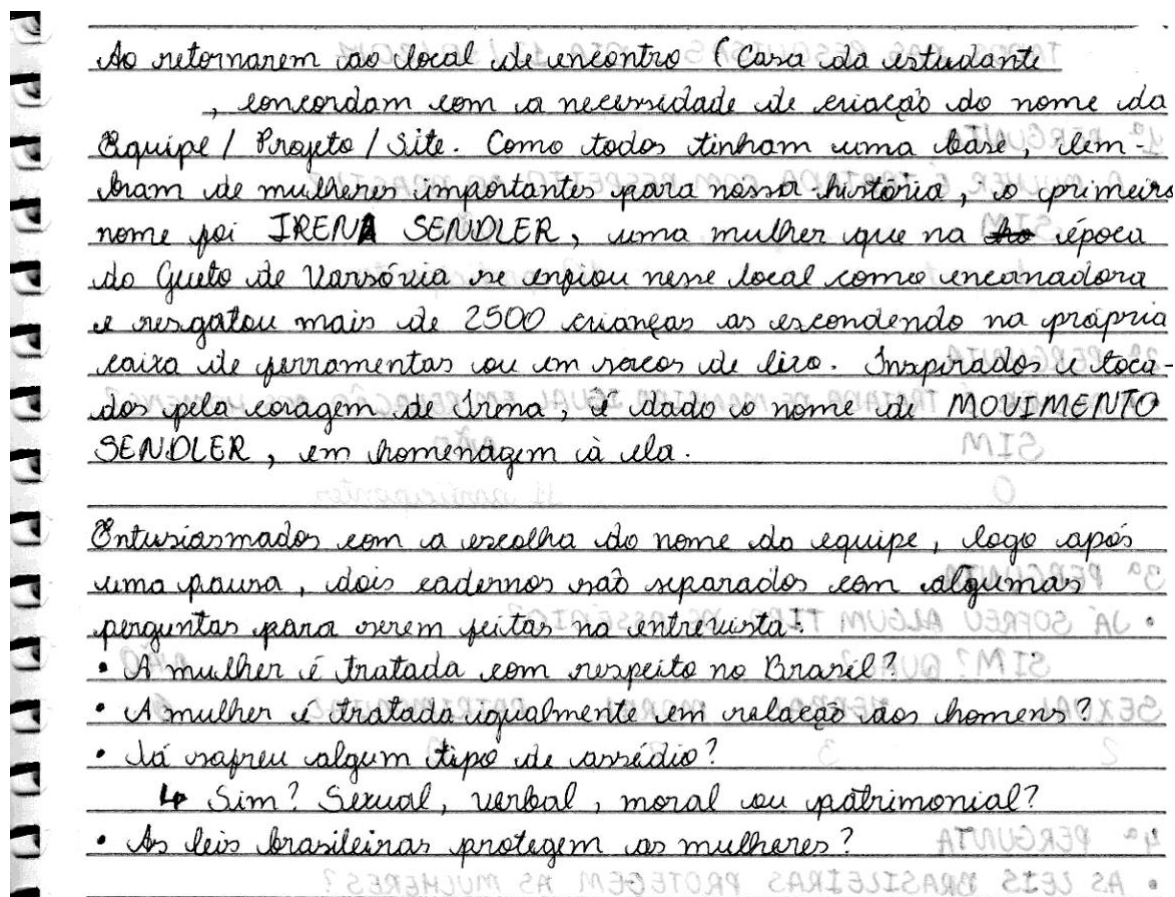 Ao retornarem ao local de encontro (Casa da estudante
, concordam com a necessidade de criação do nome da
Equipe / Projeto / Site. Como todos tinham uma base, lem-
bram de mulheres importantes para nossa história, o primeiro
nome foi IRENA SENDLER, uma mulher que na época
do Gueto de Varsóvia se enfiou nesse local como encanadora
e resgatou mais de 2500 crianças as escondendo na própria
caixa de ferramentas ou em sacos de lixo. Inspirados e toca-
dos pela coragem de Irena, é dado o nome de MOVIMENTO
SENDLER, em homenagem à ela.
Entusiasmados com a escolha do nome da equipe, logo após
uma pausa, dois cadernos são separados com algumas
perguntas para serem feitas na entrevista:
• A mulher é tratada com respeito no Brasil?
• A mulher é tratada igualmente em relação aos homens?
• Já sofreu algum tipo de assédio?
↳ Sim? Sexual, verbal, moral ou patrimonial?
• As leis brasileiras protegem as mulheres?